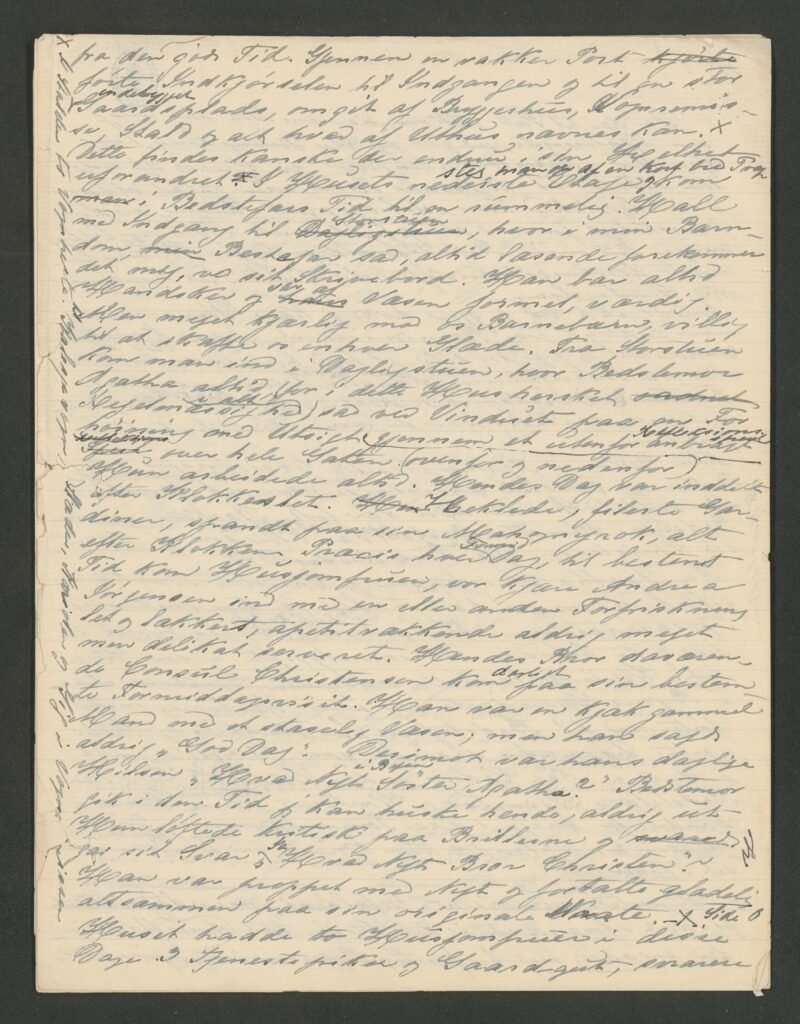 fra den gode Tid. Gjennem en vakker Port kjörte
förte Indkjörselen til Indgangen og til en stor
indebygget
Gaardsplads, omgit af Bryggerhus, Vognremis-
se, Stald og alt hvad af Uthus nævnes kan. X
Dette findes kanske der endnu i sin Helhet
uforandret. I Husets nederste Etage kom
steg man op af en kort bred Trap
man i Bedstefars Tid til en rummelig Hall
med Indgang til Dagligstuen, hvor i min Barn-
Storstuen
dom, min Bestefar sad, altid læsende forekommer
det mig, ved sit Skrivebord. Han bar altid
Handsker og var af Væsen formel, værdig.
Men meget kjærlig mod os Barnebærn, villig
til at skaffe os enhver Glæde. Fra Storstuen
kom man ind i Dagligstuen, hvor Bedstemor
Agatha altid (for i dette Hus hersket
Regelmæssighed i alt) sad ved Vinduet paa en For
höining med Utsigt gjennem et utenfor anbragt
over hele Gaten (ovenfor og nedenfor)
Hun arbeidede altid. Hendes Dag var inddelt
efter Klokkeslet. Heklede, filerte Gar-
diner, spandt paa sin Mahognyrok, alt
efter Klokken. Præcis hver Dag, til bestemt
Tid kom Husjomfruen, vor kjære Andrea
Jörgensen ind med en eller anden Forfriskning
let og lækkert, apetitvækkende aldrig meget
men delikat serveret. Hendes Bror daværen-
de Consul Christensen kom dagligt paa sin bestem
te Formiddagsvisit. Han var en kjæk gammel
Mand med et staselig Væsen; men han sagde
aldrig „God Dag". Derimot var hans daglige
Hilsen „Hvad Nyt i Byen Söster Agatha?" Bedstemor
gik i den Tid jeg kan huske hende, aldrig ut
Hun löftede kritisk paa Brillerne og svarede
gav sit Svar „Hvad Nyt Bror Christen"?
Han var proppet med Nyt og fortalte gladelig
altsammen paa sin originale Maate. X Side
Huset hadde to Husjomfruer i disse
Dage. 2 Tjenestepiker og Gaardsgut, svarere
X I Stalden to Vognheste.